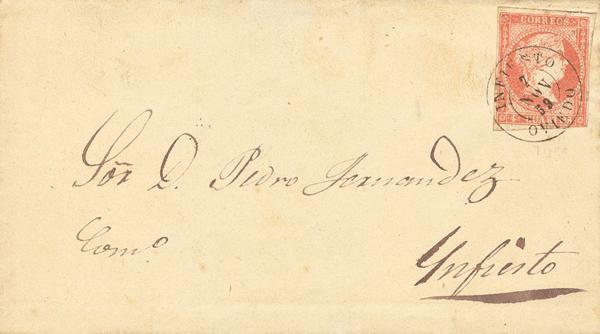 CORREOS
INFIESTO
7
NOV
59
OVIEDO
Sõr D. Pedro Fernandez
Comº
Ynfiesto